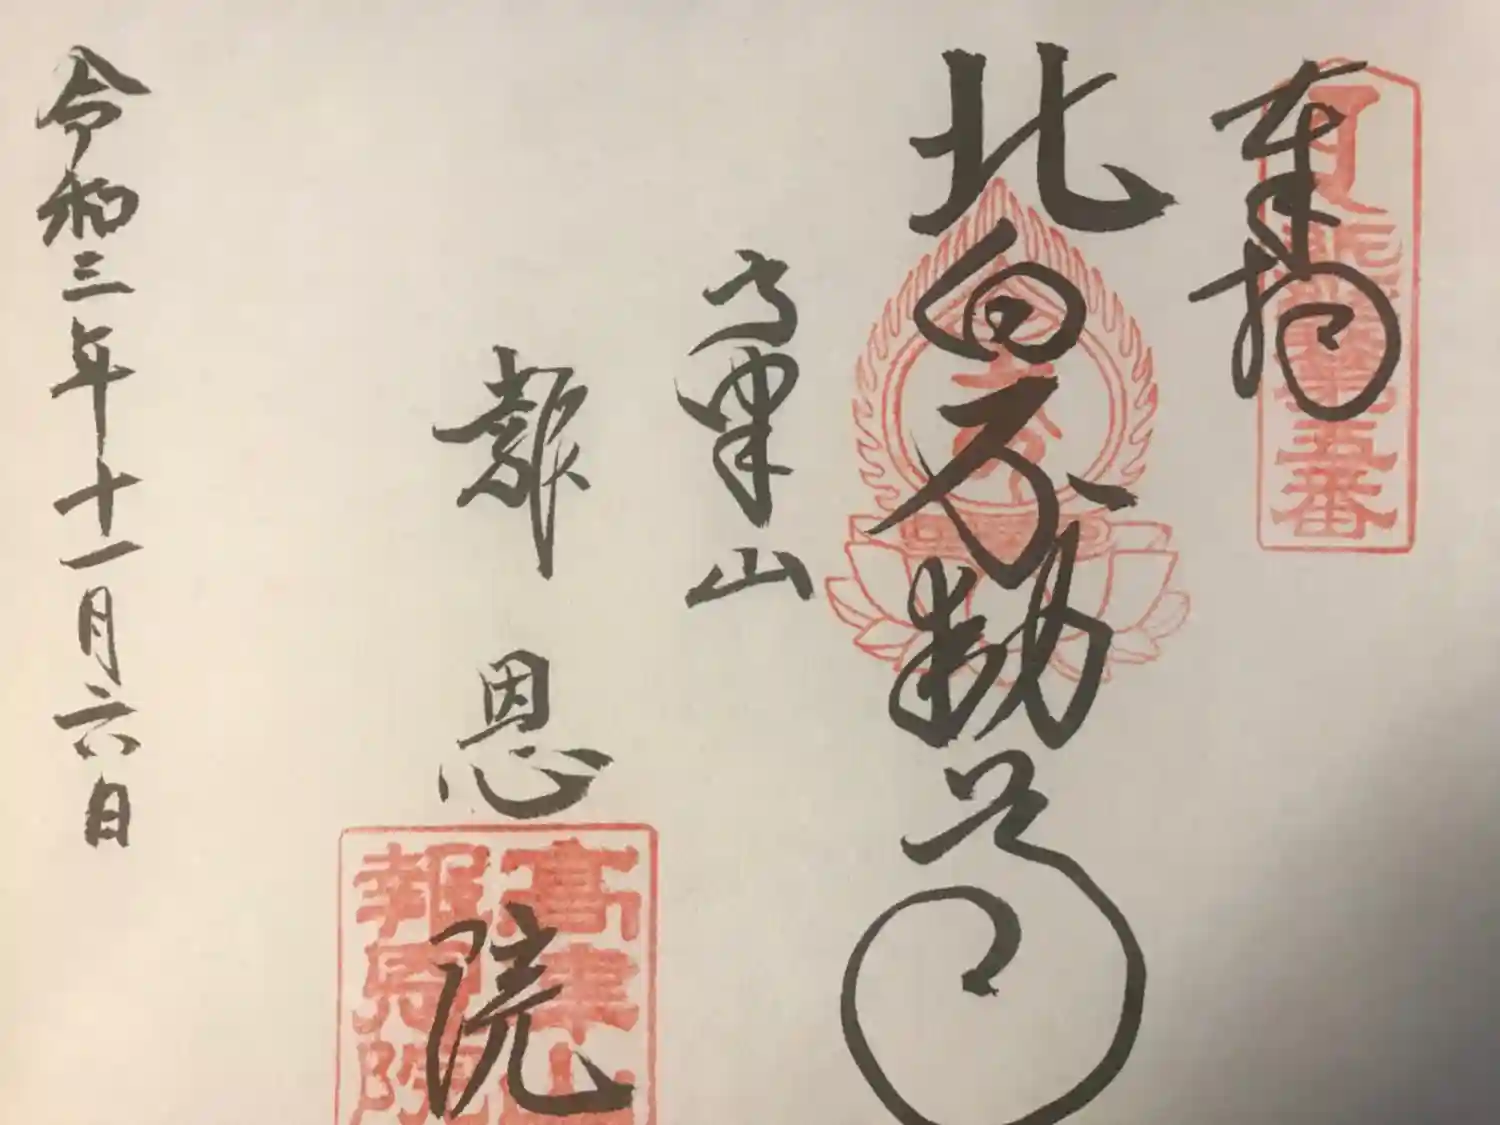 奉拝
五番
北向不動尊
高津山
報恩院
高津山
報恩院
令和三年十一月六日